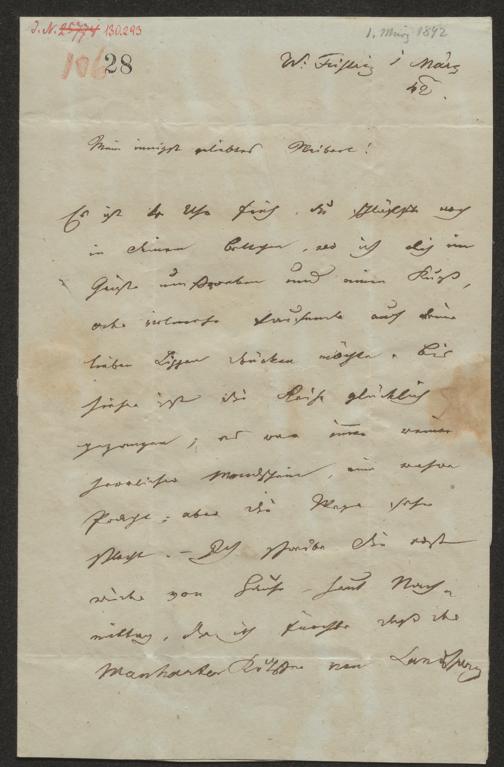 J. N. 25774 130.293
1. März 1842
106 28
W. Feistriz 1 März
42.
Mein innigst geliebtes Weiberl!
Es ist Uhr früh. Du schläfst noch
in deinem Bettchen, wo ich dich im
Geiste und einen Kuß,
oder vielmehr tausende auf deine
lieben Lippen drücken möchte. Bis
hieher ist die Reise glücklich
gegangen; es war immer
herrlicher Mondschein, eine wahre
Pracht; aber die Wege sehr
schlecht. – Ich schreibe dir
von Hause heut Nach-
mittag, da ich fürchte daß
von